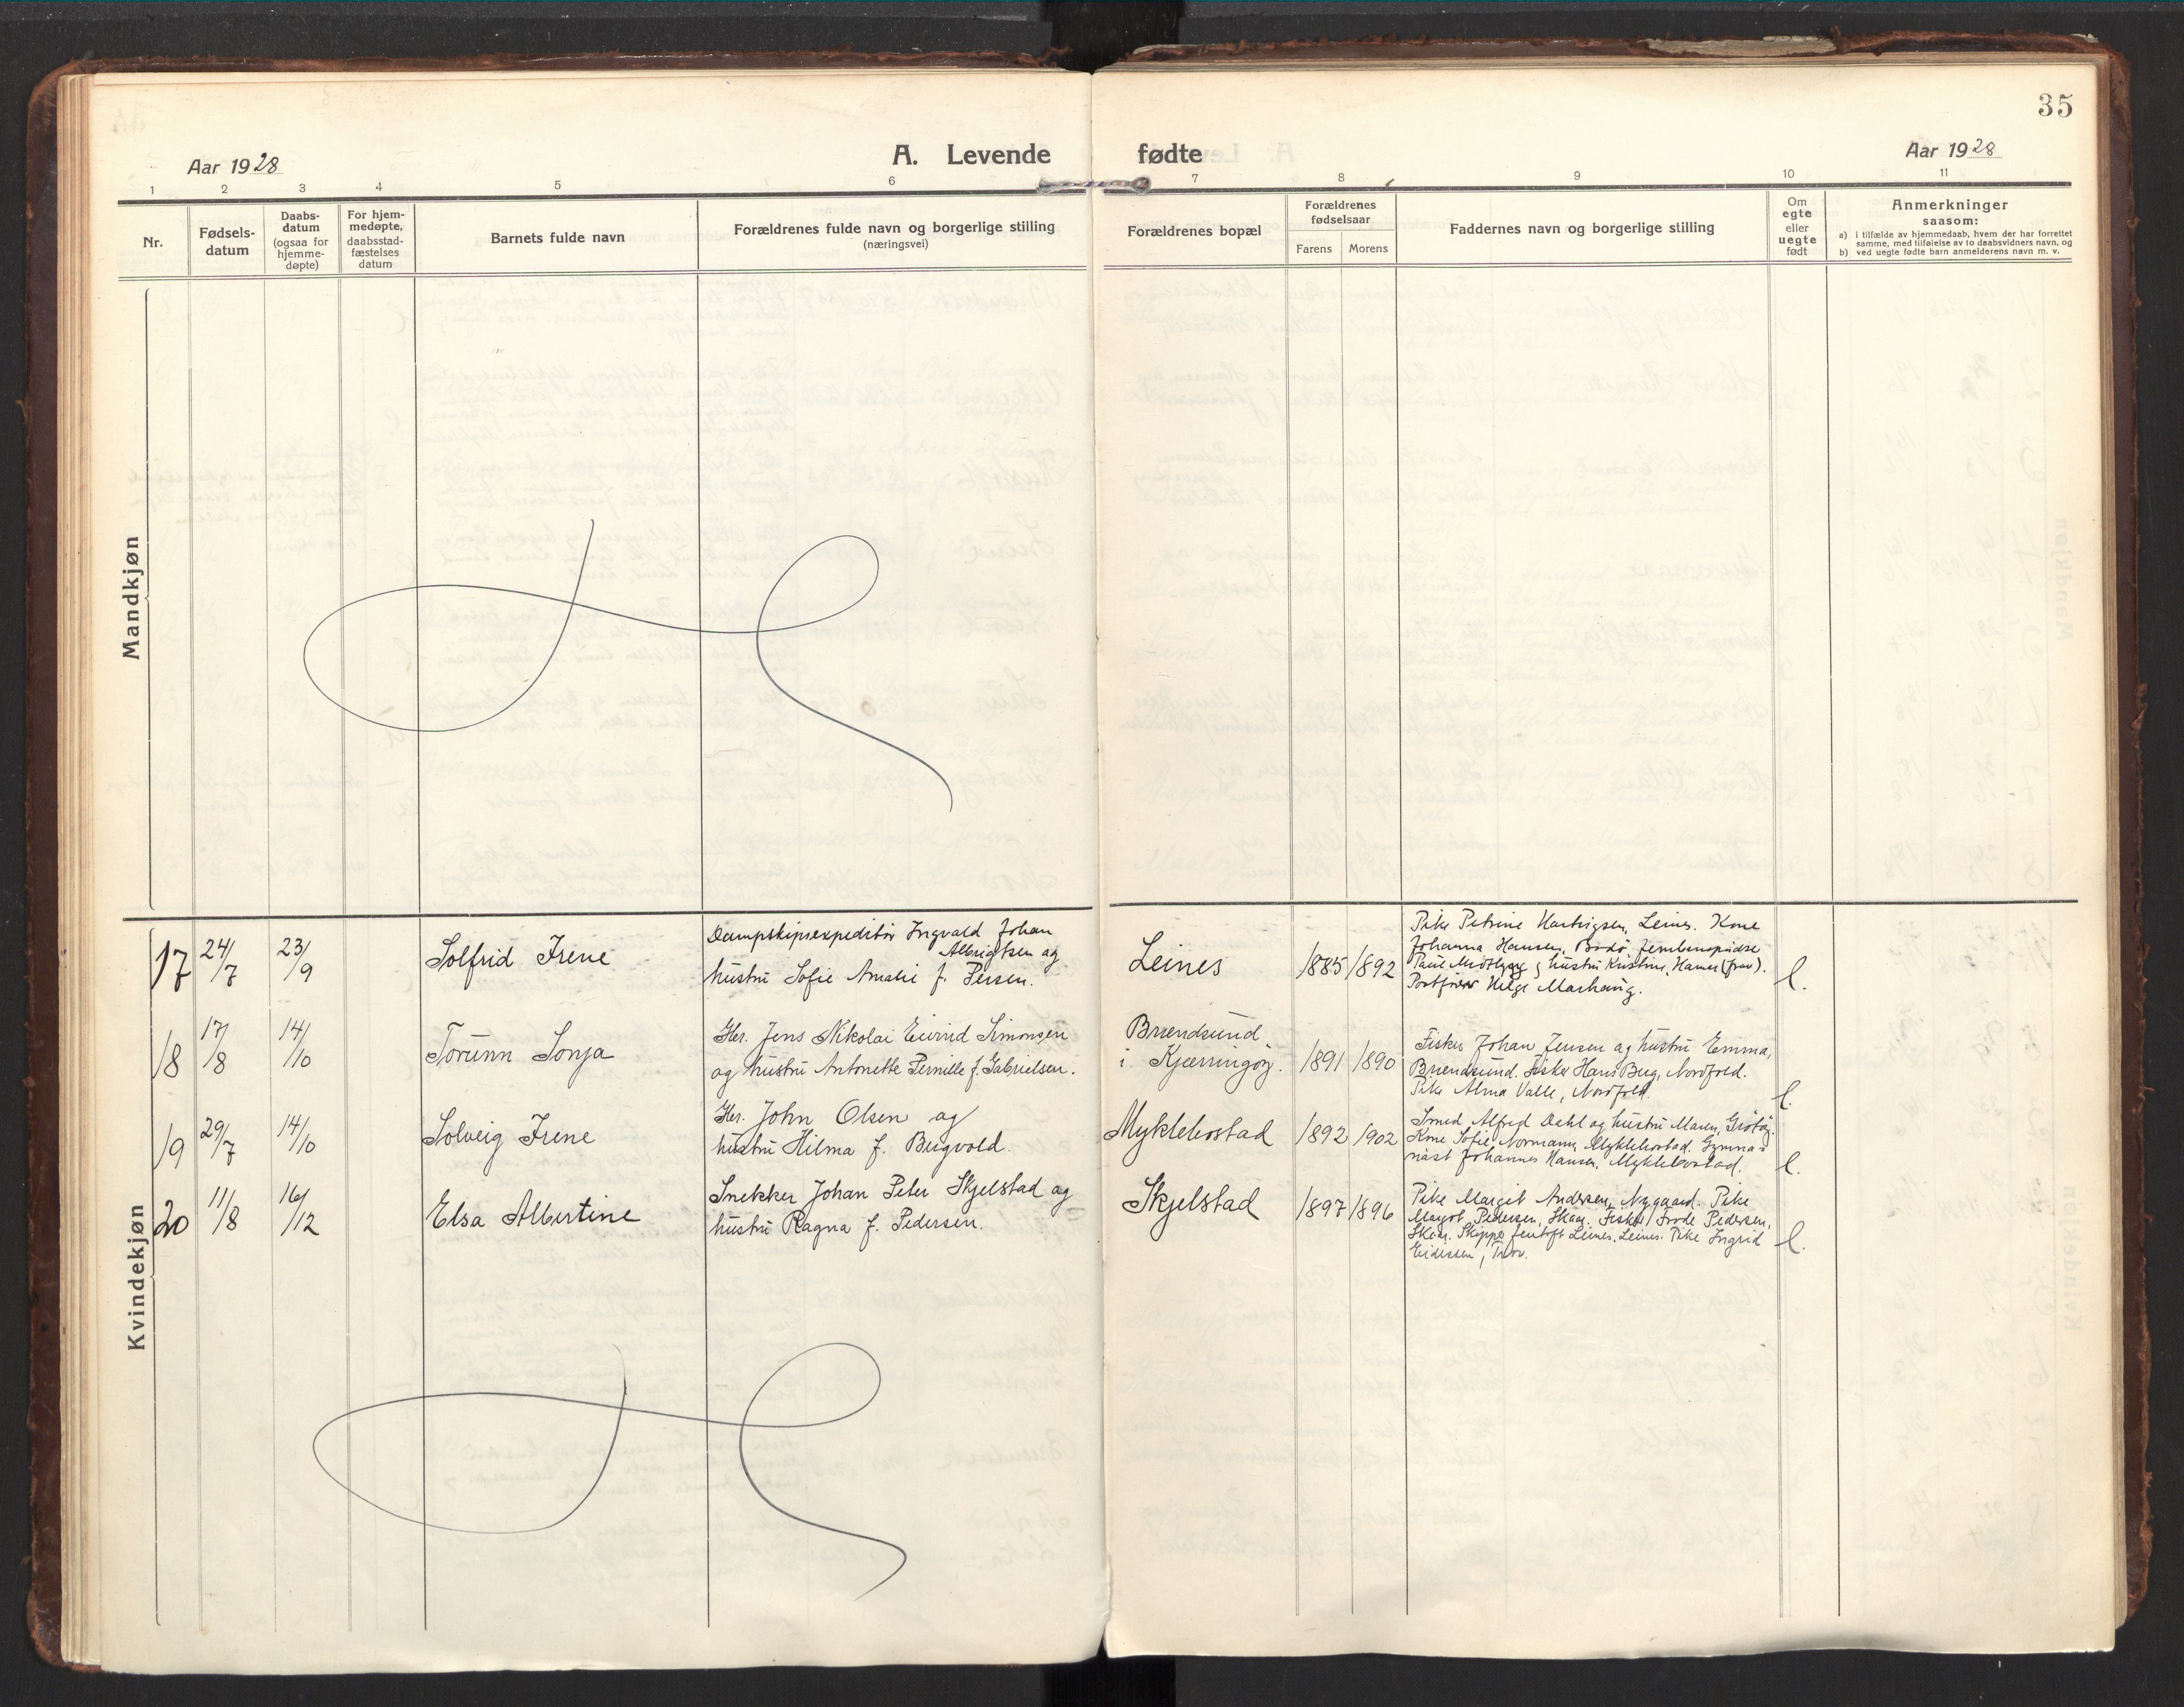 35
Aar 1928
A. Levende fødte
Aar 1928
1 2 3 4 5 6 7 8 9 10 11
Nr.
Fødsels-
datum
Daabs-
datum
(ogsaa for
hjemme-
døpte)
For hjem-
medøpte,
daabsstad-
fæstelses
datum
Barnets fulde navn
Forældrenes fulde navn og borgerlige stilling
(næringsvei)
Forældrenes bopæl
Forældrenes
fødselsaar
Farens Morens
Faddernes navn og borgerlige stilling
Om
egte
eller
uegte
født
Anmerkninger
saasom:
a) i tilfælde av hjemmedaab, hvem der har forrettet
samme, med tilføielse av to daabsvidners navn, og
b) ved uegte fødte barn anmelderens navn m. v.
Mandkjøn
Kvindekjøn
17 24/7 23/9 Solfrid Irene
Dampskipsexpeditör Ingvald Johan
Albrigtsen og
hustru Sofie Amalie f. Persen.
Leines 1885 1892
Pike Petrine Hartvigsen, Leines. Kone
Johanna Hansen, Bodö,
hustru Kristine, Hamer (frav).
Postfører Helge Marhaug.
e.
18 17/8 14/10 Torunn Sonja
Gbr. Jens Nikolai Eivind Simonsen
og hustru Antonette Pernille f. Gabrielsen.
Brændsund
i Kjerringöy. 1891 1890
Fisker Johan Jensen og hustru Emma,
Brændsund. Fisker Hans Berg, Nordfold.
Pike Alma Valle, Nordfold.
e.
19 29/7 14/10 Solveig Irene
Gbr. John Olsen og
hustru Hilma f. Bergvold.
Myklebostad 1892 1902
Smed Alfred Dahl og hustru Maren, Grötöy.
Kone Sofie Normann, Myklebostad. Gymna-
siast Johannes Hansen, Myklebostad.
e.
20 11/8 16/12 Elsa Albertine
Snekker Johan Peter Skjelstad og
hustru Ragna f. Pedersen.
Skjelstad 1897 1896
Pike Margit Andersen, Nygaard. Pike
Margot Pedersen, Skaar. Fisker Frode Pedersen,
Skaar. Skipper Jentoft Leines, Leines. Pike Ingrid
e.